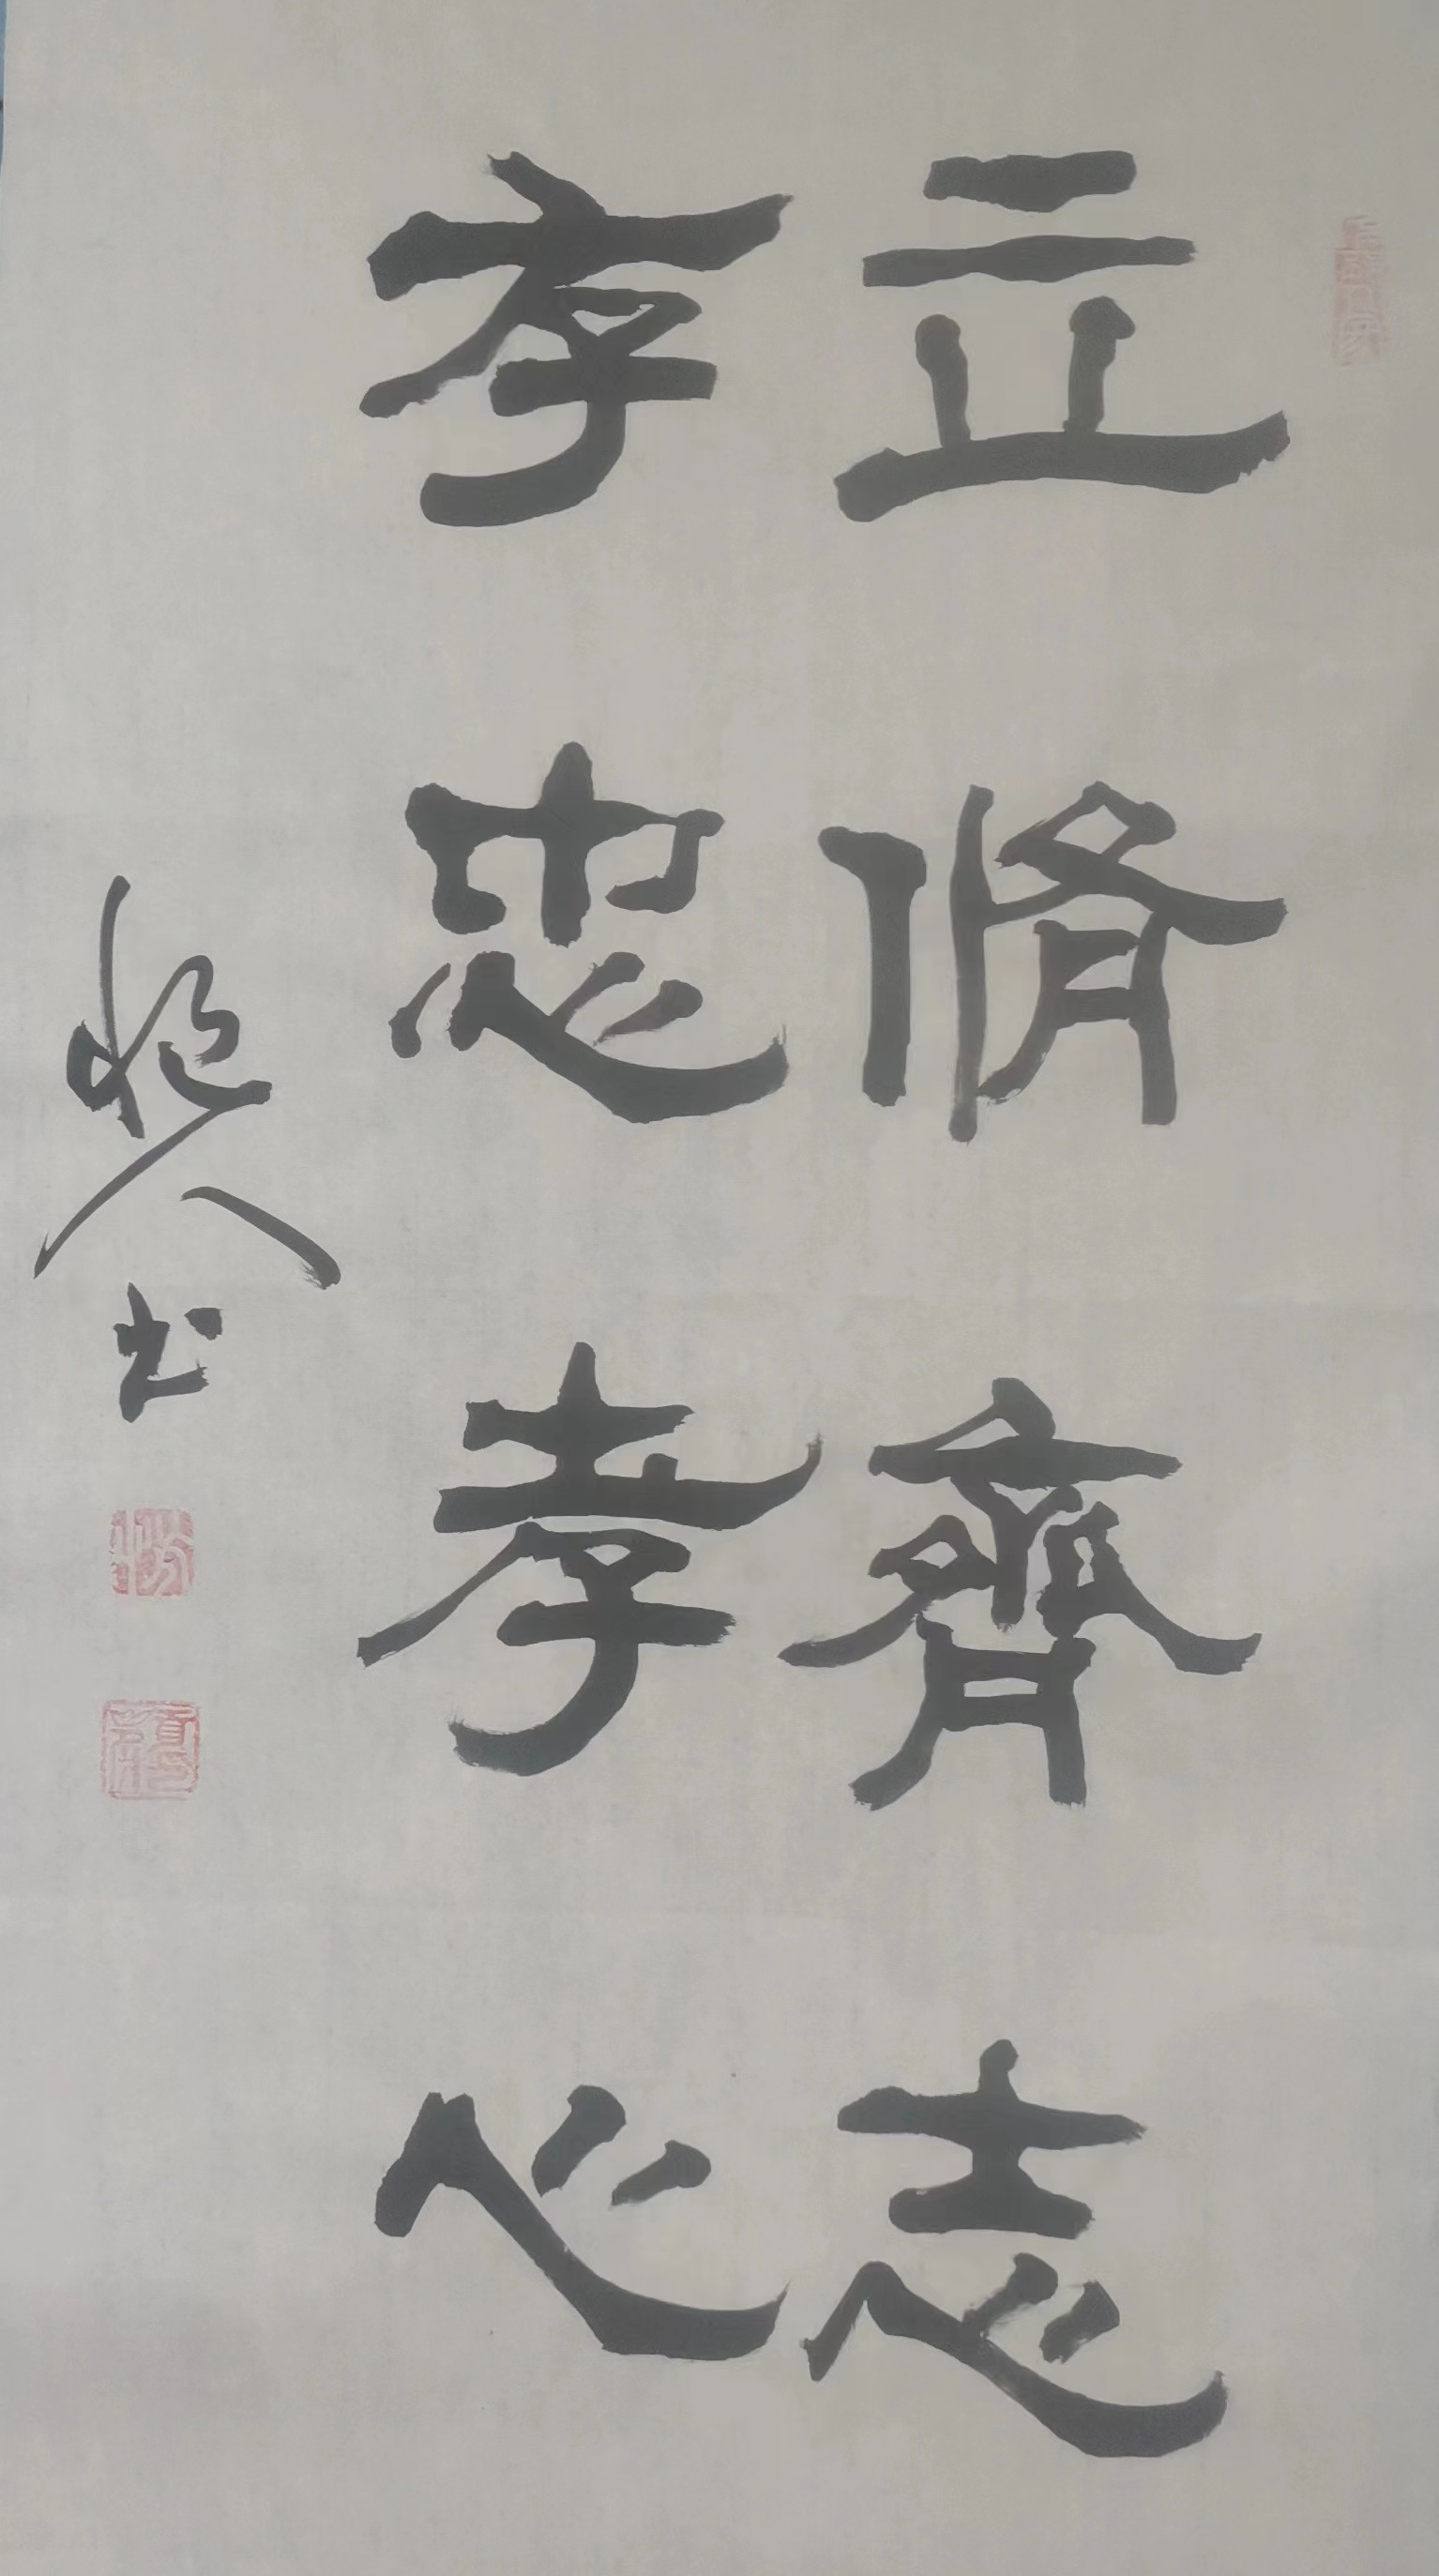 立脩齊志
存忠孝心
人书